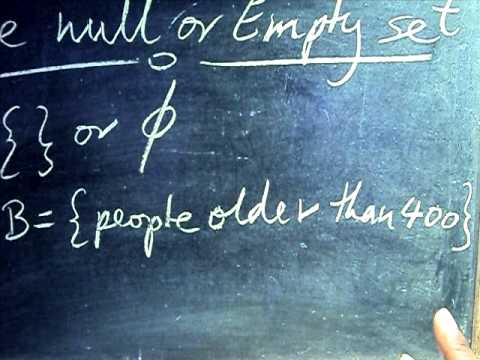 e null or Empty set
{ } or ϕ
B = {people older than 400}